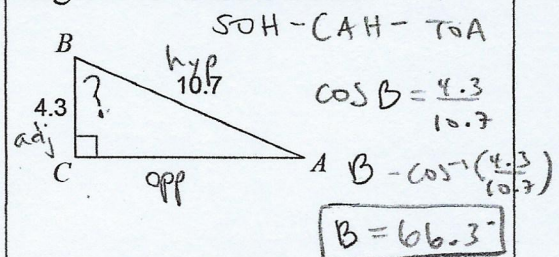 SOH - CAH - TOA
B
hyp
10.7
?
4.3
adj
C
opp
A
cos B = 4.3/10.7
B - cos⁻¹(4.3/10.7)
B = 66.3°